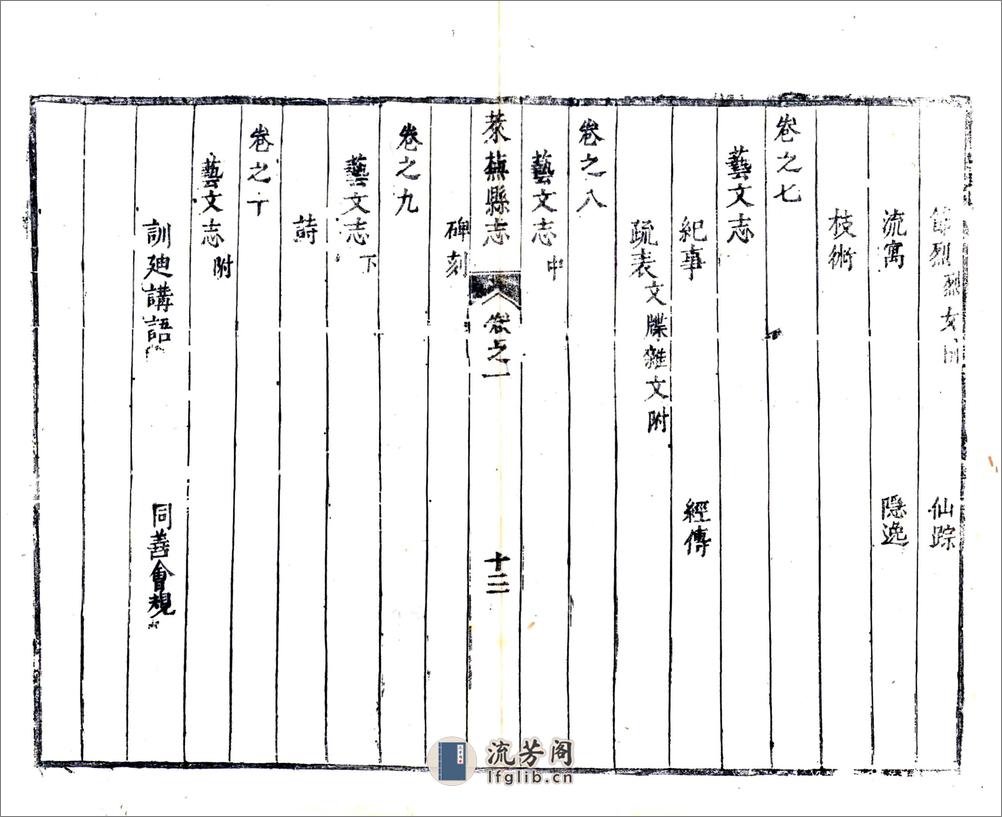 節烈 烈女附 仙踪
流寓 隠逸
枝術
卷之七
藝文志
紀事 經傳
疏表 文牒雜文附
卷之八
藝文志 中
碑刻
萊蕪縣志 卷之一 十二
卷之九
藝文志 下
詩
卷之十
藝文志 附
訓廸講語 同善會規
流芳阁
lfglib.cn